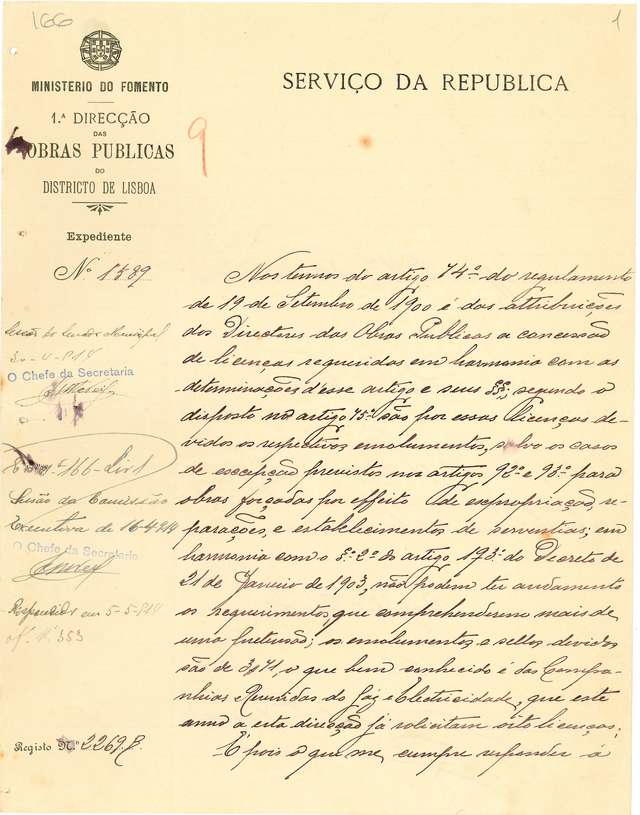 166
1
MINISTERIO DO FOMENTO
1.ª DIRECÇÃO
DAS
OBRAS PUBLICAS
DO
DISTRICTO DE LISBOA
Expediente
Nº 1589
SERVIÇO DA REPUBLICA
9
Nos termos do artigo 74º do regulamento
de 19 de Setembro de 1900 é das attribuições
dos Directores das Obras Publicas a concessão
de licenças requeridas em harmonia com as
determinações d'esse artigo e seus §§, segundo o
disposto no artigo 75º são por essas licenças de-
vidos os respectivos emolumentos, salvo os casos
de excepção previstos nos artigos 92º e 93º para
obras forçadas por effeito de expropriação, re-
parações, e estabelecimentos de serventias; em
harmonia com o §º 2º do artigo 193º do Decreto de
21 de Janeiro de 1903, não podem ter andamento
os requerimentos que comprehenderem mais de
uma pretensão; os emolumentos e sellos devidos
são de 3$071, o que bem conhecido é das Compa-
nhias Reunidas do Gaz e Electricidade, que este
anno a esta direcção já solicitam oito licenças;
É pois o que me cumpre responder á
O Chefe da Secretaria
166 - Liv 1
Sessão da Commissão
Executiva de 16-4-914
O Chefe da Secretaria
Respondido em 5-5-914
of. Nº 353
Registo N.º 2269